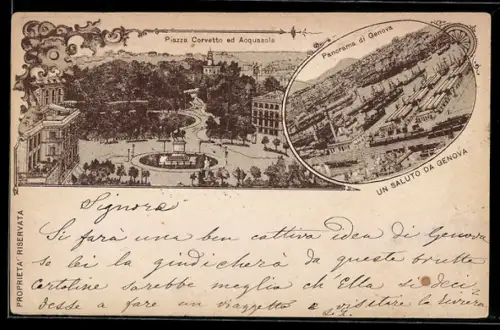 Piazza Corvetto ed Acquasola
Panorama di Genova
UN SALUTO DA GENOVA
PROPRIETA' RISERVATA
Signora
Si farà una ben cattiva idea di Genova
se lei la giudicherà da queste brutte
cartoline sarebbe meglio ch'Ella si deci-
desse a fare un viaggetto a visitare la riviera